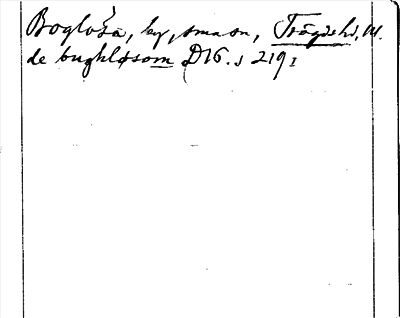 Boglösa, by, sman, Trögds hd, U.
de bughløsom DS 6. s 219 1